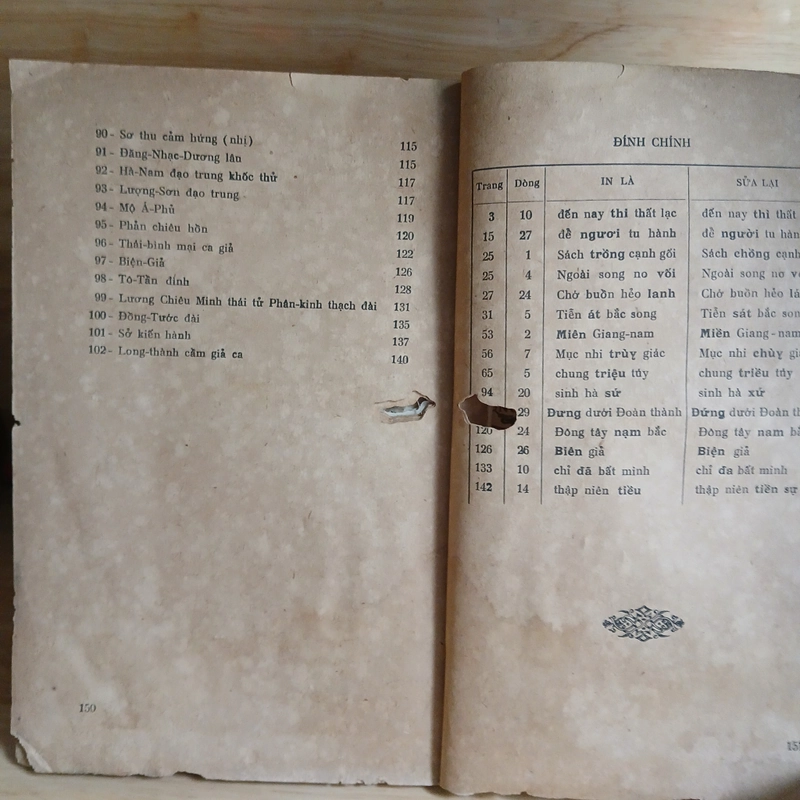 90- Sơ thu cảm hứng (nhị) 115
91- Đăng-Nhạc-Dương lâu 115
92- Hà-Nam đạo trung khốc thử 117
93- Lượng-Sơn đạo trung 117
94- Mộ Á-Phủ 119
95- Phản chiêu hồn 120
96- Thái-bình mại ca giả 122
97- Biện-Giả 126
98- Tô-Tần đình 128
99- Lương Chiêu Minh thái tử Phân-kinh thạch đài 131
100- Đồng-Tước đài 135
101- Sở kiến hành 137
102- Long-thành cầm giả ca 140
150
ĐÍNH CHÍNH
Trang Dòng IN LÀ SỬA LẠI
3 10 đến nay thì thất lạc đến nay thì thất
15 27 để ngươi tu hành để người tu hành
25 1 Sách trồng cạnh gối Sách chồng cạnh
25 4 Ngoài song no vối Ngoài song no
27 24 Chớ buồn hẻo lanh Chớ buồn hẻo
31 5 Tiễn át bắc song Tiễn sát bắc song
53 2 Miên Giang-nam Miền Giang-nam
56 7 Mục nhi trùy giác Mục nhi chùy
65 5 chung triệu túy chung triều túy
94 20 sinh hà sứ sinh hà xứ
29 Đưng dưới Đoàn thành Đứng dưới Đoàn
120 24 Đông tây nạm bắc Đông tây nam
126 26 Biên giả Biện giả
133 10 chỉ đã bất minh chỉ đa bất minh
142 14 thập niên tiều thập niên tiền sự